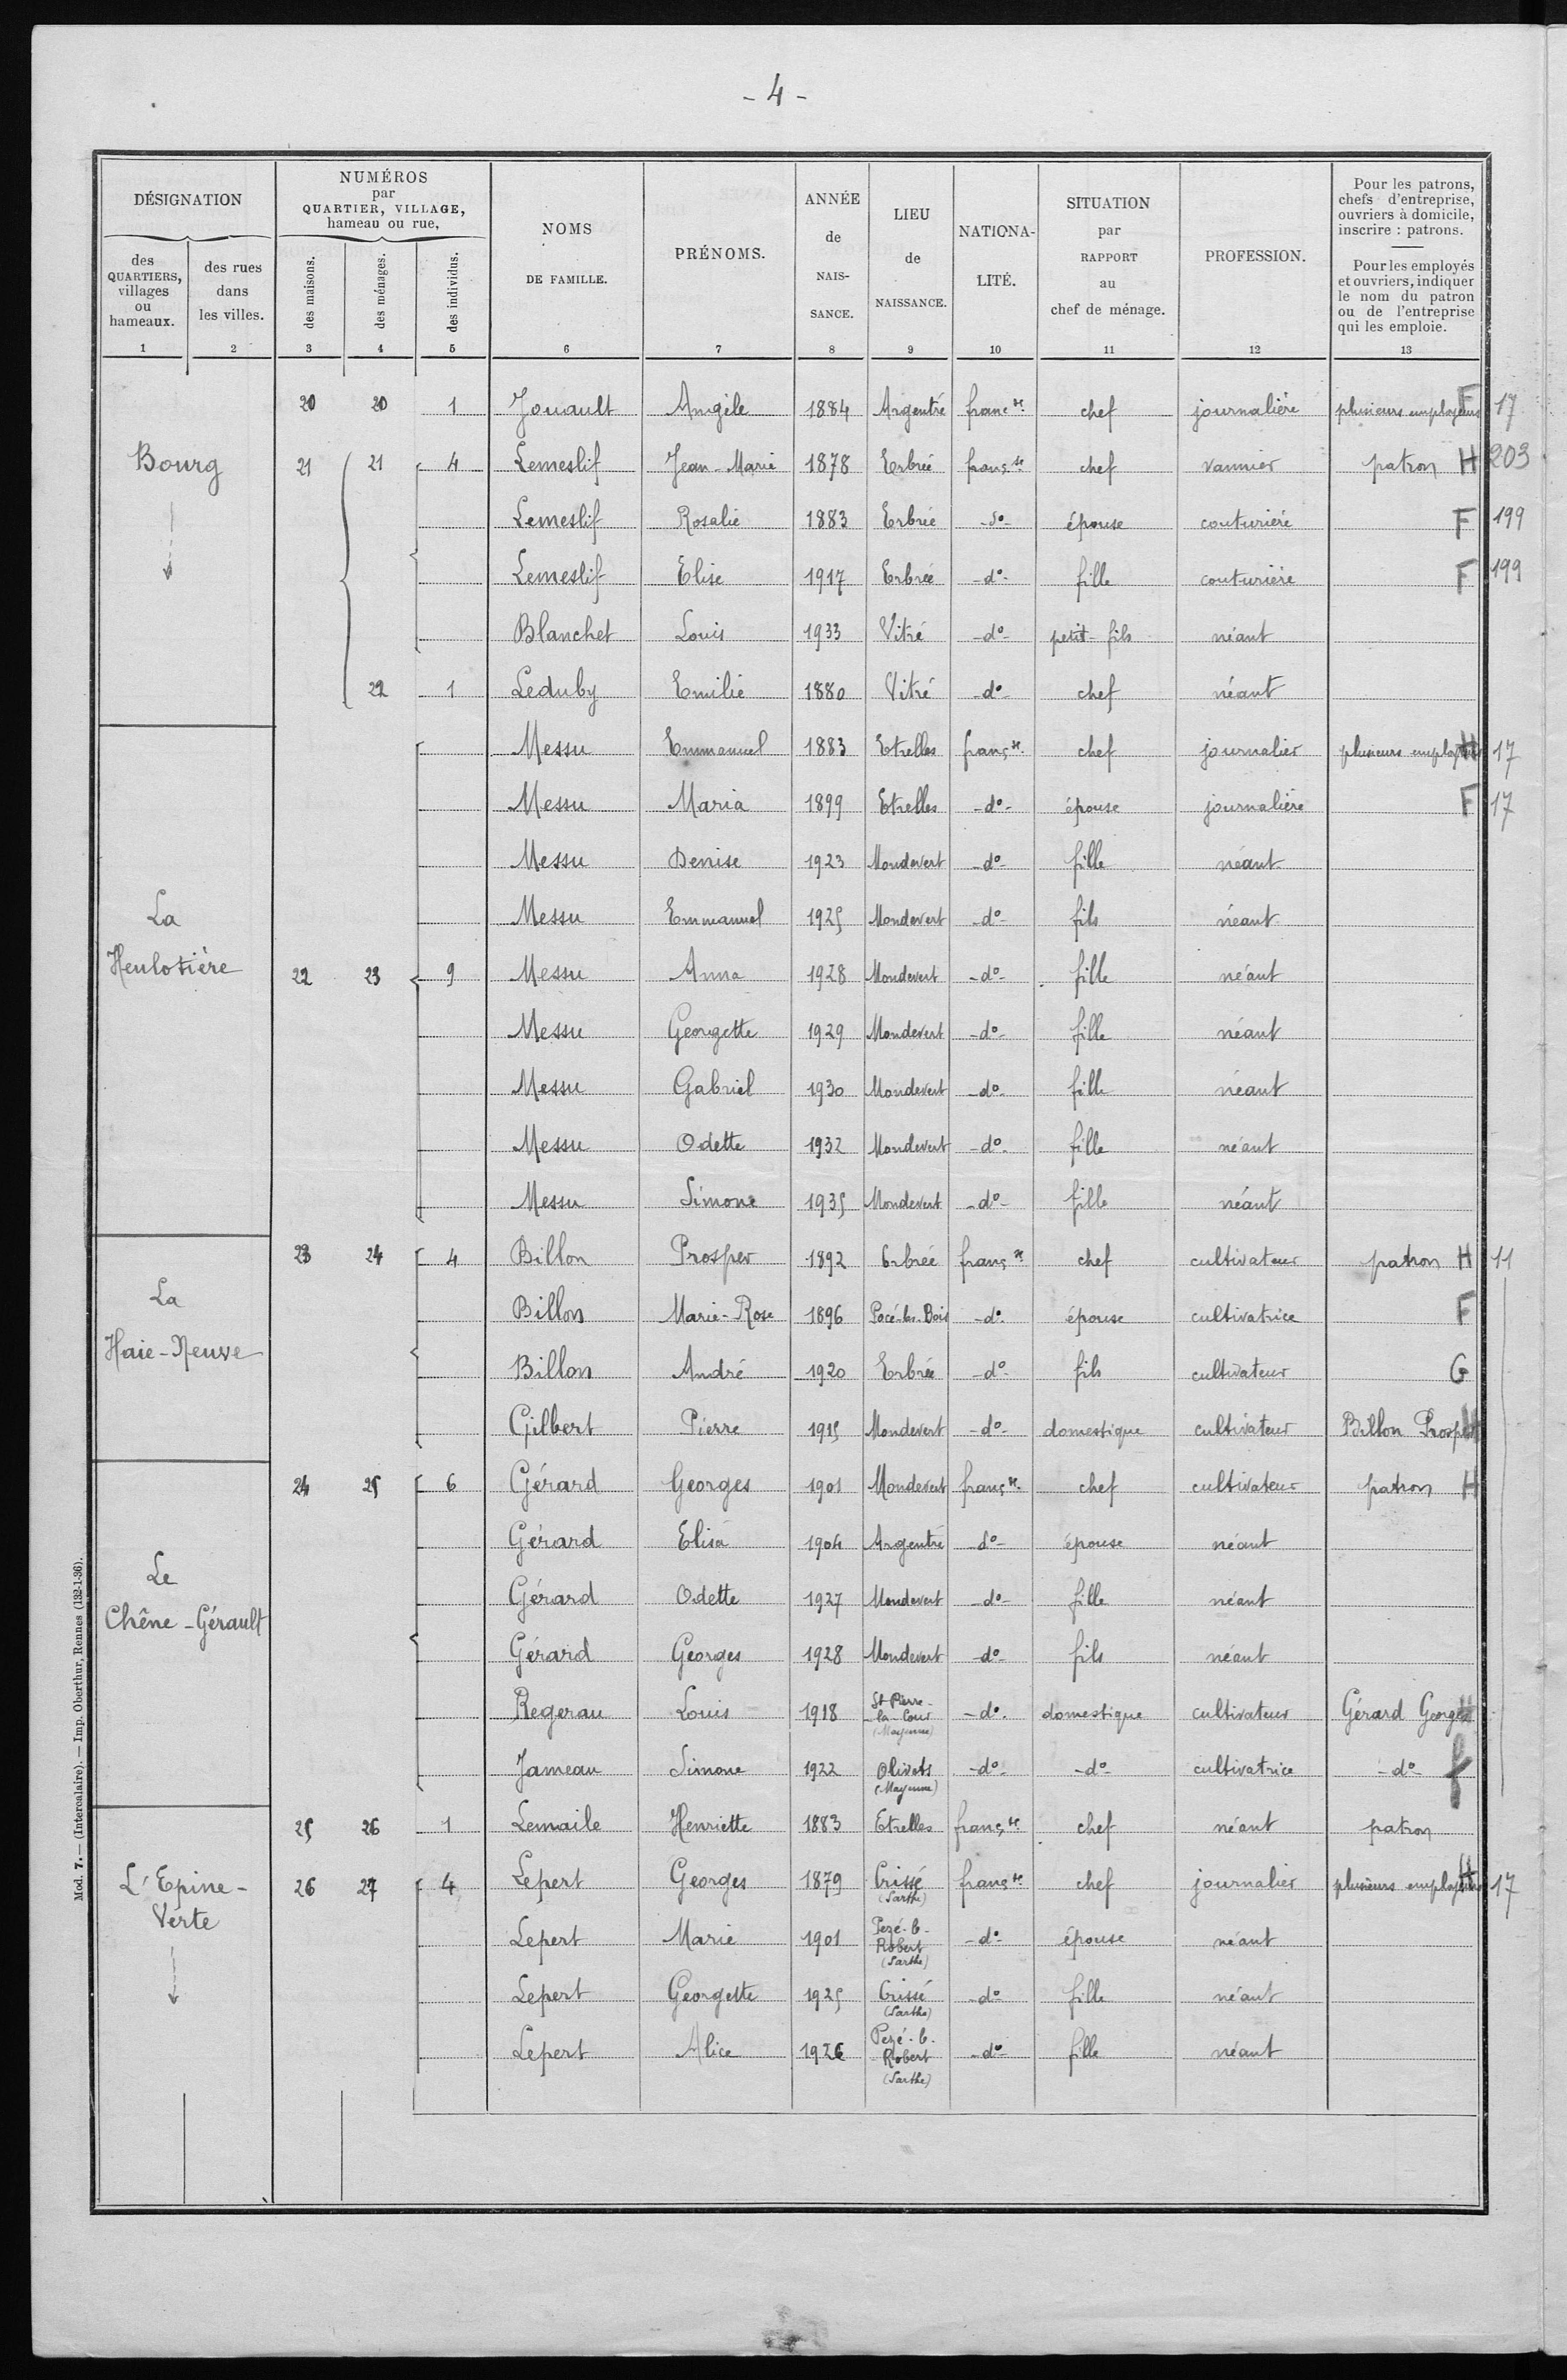 - 4 -
DÉSIGNATION
NUMÉROS
par
QUARTIER, VILLAGE,
hameau ou rue,
des
QUARTIERS,
villages
ou
hameaux.
des rues
dans
les villes.
des maisons.
des ménages.
des individus.
NOMS
DE FAMILLE.
PRÉNOMS.
ANNÉE
de
NAIS-
SANCE.
LIEU
de
NAISSANCE.
NATIONA-
LITÉ.
SITUATION
par
RAPPORT
au
chef de ménage.
PROFESSION.
Pour les patrons,
chefs d'entreprise,
ouvriers à domicile,
inscrire : patrons.
Pour les employés
et ouvriers, indiquer
le nom du patron
ou de l'entreprise
qui les emploie.
1 2 3 4 5 6 7 8 9 10 11 12 13
20 20 1 Jouault Angèle 1884 Argentré franc se chef journalière plusieurs employeurs F 17
Bourg 21 21 4 Lemeslif Jean-Marie 1878 Erbrée franç se chef vannier patron H 203
Lemeslif Rosalie 1883 Erbrée -do- épouse couturière F 199
Lemeslif Elise 1917 Erbrée -do- fille couturière F 199
Blanchet Louis 1933 Vitré -do- petit-fils néant
22 1 Leduby Emilie 1880 Vitré -do- chef néant
Messu Emmanuel 1883 Etrelles franç se chef journalier plusieurs employeurs H 17
Messu Maria 1899 Etrelles -do- épouse journalière F 17
Messu Denise 1923 Mondevert -do- fille néant
La
Messu Emmanuel 1925 Mondevert -do- fils néant
Heulotière 22 23 9 Messu Anna 1928 Mondevert -do- fille néant
Messu Georgette 1929 Mondevert -do- fille néant
Messu Gabriel 1930 Mondevert -do- fille néant
Messu Odette 1932 Mondevert -do- fille néant
Messu Simone 1935 Mondevert -do- fille néant
23 24 4 Billon Prosper 1892 Erbrée franç se chef cultivateur patron H 11
La
Billon Marie-Rose 1896 Pocé-les-Bois -do- épouse cultivatrice F
Haie-Neuve
Billon André 1920 Erbrée -do- fils cultivateur G
Gilbert Pierre 1915 Mondevert -do- domestique cultivateur Billon Prosper H
24 25 6 Gérard Georges 1901 Mondevert franç se chef cultivateur patron H
Gérard Elisa 1904 Argentré -do- épouse néant
Le
Gérard Odette 1927 Mondevert -do- fille néant
Chêne-Gérault
Gérard Georges 1928 Mondevert -do- fils néant
Regerau Louis 1918 St-Pierre-la-Cour (Mayenne) -do- domestique cultivateur Gérard Georges H
Jameau Simone 1922 Olivets (Mayenne) -do- -do- cultivatrice -do- f
25 26 1 Lemaile Henriette 1883 Etrelles franç se chef néant patron
L'Epine-
Verte
26 27 4 Lepert Georges 1879 Crissé (Sarthe) franç se chef journalier plusieurs employeurs H 17
Lepert Marie 1901 Pezé-le-Robert (Sarthe) -do- épouse néant
Lepert Georgette 1925 Crissé (Sarthe) -do- fille néant
Lepert Alice 1926 Pezé-le-Robert (Sarthe) -do- fille néant
Mod. 7. — (Intercalaire). — Imp. Oberthur, Rennes (132-1-36).